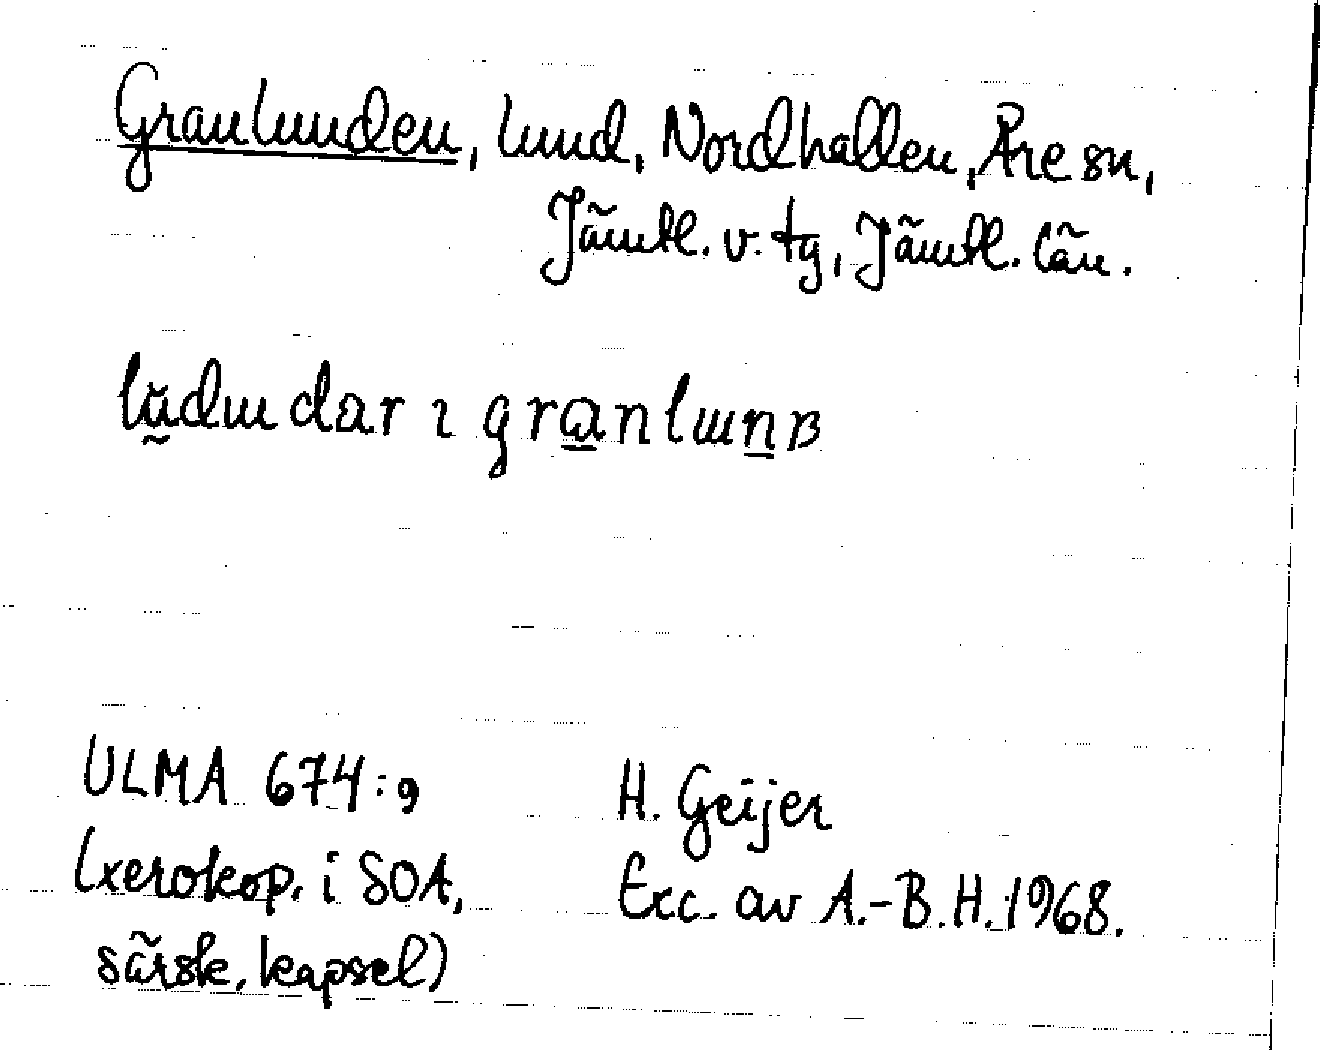 Granlunden, lund, Nordhallen, Åre sn,
Jämtl. v. tg, Jämtl. län.
dar ɪ granlɯnʙ
ULMA 674:9
H. Geijer
(xerokop. i SOA,
Exc. av A.-B.H. 1968.
särsk. kapsel)